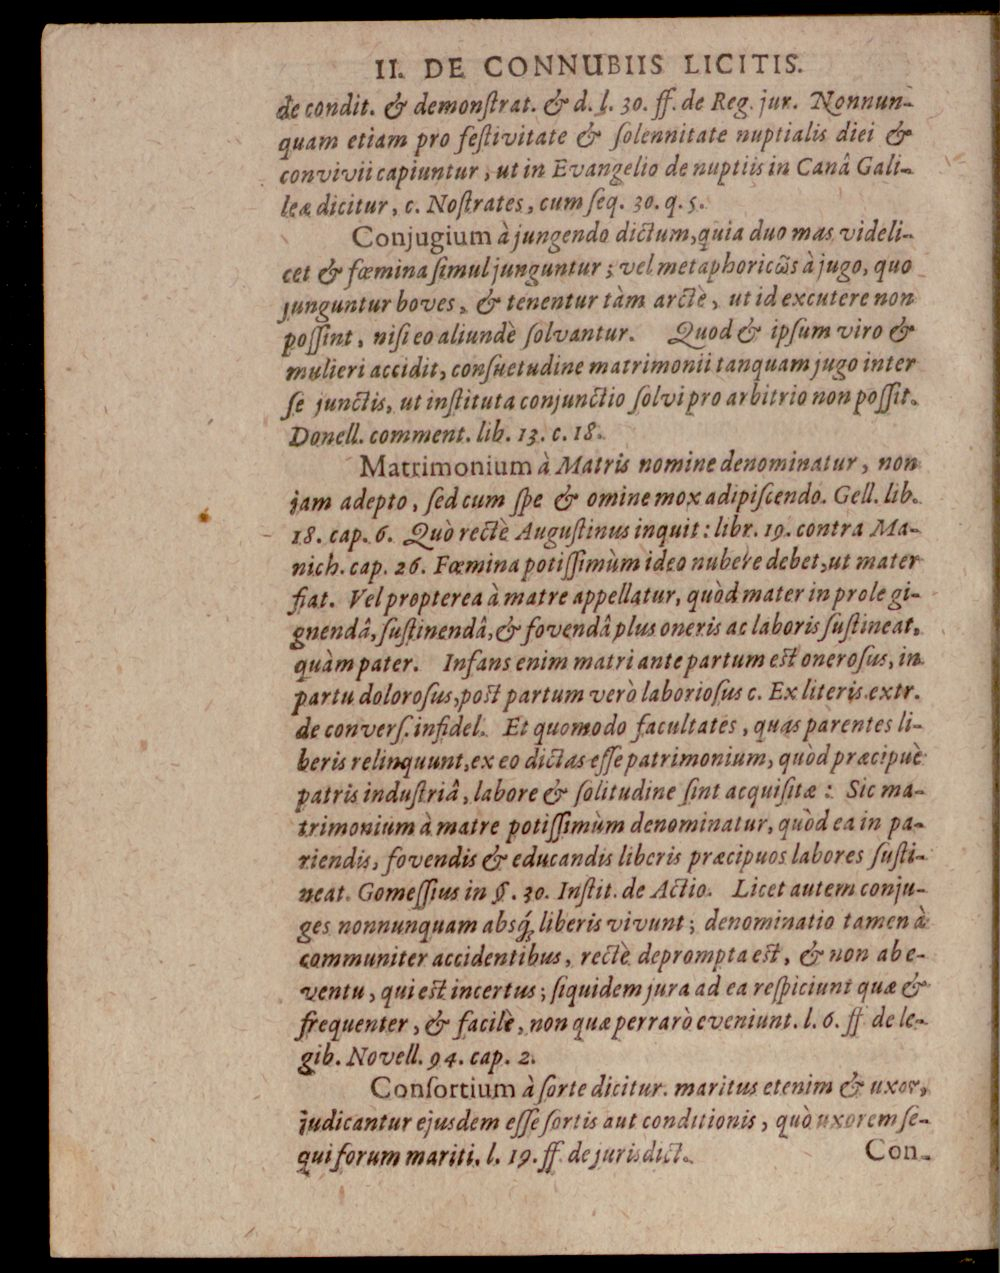 II. DE CONNUBIIS LICITIS.
de condit. & demonſtrat. & d. l. 30. ff. de Reg. jur. Nonnun-
quam etiam pro feſtivitate & ſolennitate nuptialis diei &
convivii capiuntur, ut in Evangelio de nuptiis in Canâ Gali-
leæ dicitur, c. Noſtrates, cum ſeq. 30. q. 5.
Conjugium à jungendo dictum, quia duo mas videli-
cet & fœmina ſimul junguntur; vel metaphoricῶs à jugo, quo
junguntur boves, & tenentur tàm arctè, ut id excutere non
poſſint, niſi eo aliundè ſolvantur. Quod & ipſum viro &
mulieri accidit, conſuetudine matrimonii tanquam jugo inter
ſe junctis, ut inſtituta conjunctio ſolvi pro arbitrio non poſſit.
Donell. comment. lib. 13. c. 18.
Matrimonium à Matris nomine denominatur, non
jam adepto, ſed cum ſpe & omine mox adipiſcendo. Gell. lib.
18. cap. 6. Quò rectè Auguſtinus inquit: libr. 19. contra Ma-
nich. cap. 26. Fœmina potiſſimùm ideo nubere debet, ut mater
fiat. Vel propterea à matre appellatur, quòd mater in prole gi-
gnendâ, ſuſtinendâ, & fovendâ plus oneris ac laboris ſuſtineat,
quàm pater. Infans enim matri ante partum eſt oneroſus, in
partu doloroſus, poſt partum verò laborioſus c. Ex literis extr.
de converſ. infidel. Et quomodo facultates, quas parentes li-
beris relinquunt, ex eo dictas eſſe patrimonium, quòd præcipuè
patris induſtriâ, labore & ſolitudine ſint acquiſitæ: Sic ma-
trimonium à matre potiſſimùm denominatur, quòd ea in pa-
riendis, fovendis & educandis liberis præcipuos labores ſuſti-
neat. Gomeſſius in §. 30. Inſtit. de Actio. Licet autem conju-
ges nonnunquam absq́; liberis vivunt; denominatio tamen à
communiter accidentibus, rectè deprompta eſt, & non ab e-
ventu, qui eſt incertus; ſiquidem jura ad ea reſpiciunt quæ &
frequenter, & facilè, non quæ perrarò eveniunt. l. 6. ff de le-
gib. Novell. 94. cap. 2.
Conſortium à ſorte dicitur. maritus etenim & uxor,
judicantur ejusdem eſſe ſortis aut conditionis, quò uxorem ſe-
qui forum mariti. l. 19. ff. de jurisdict.
Con-